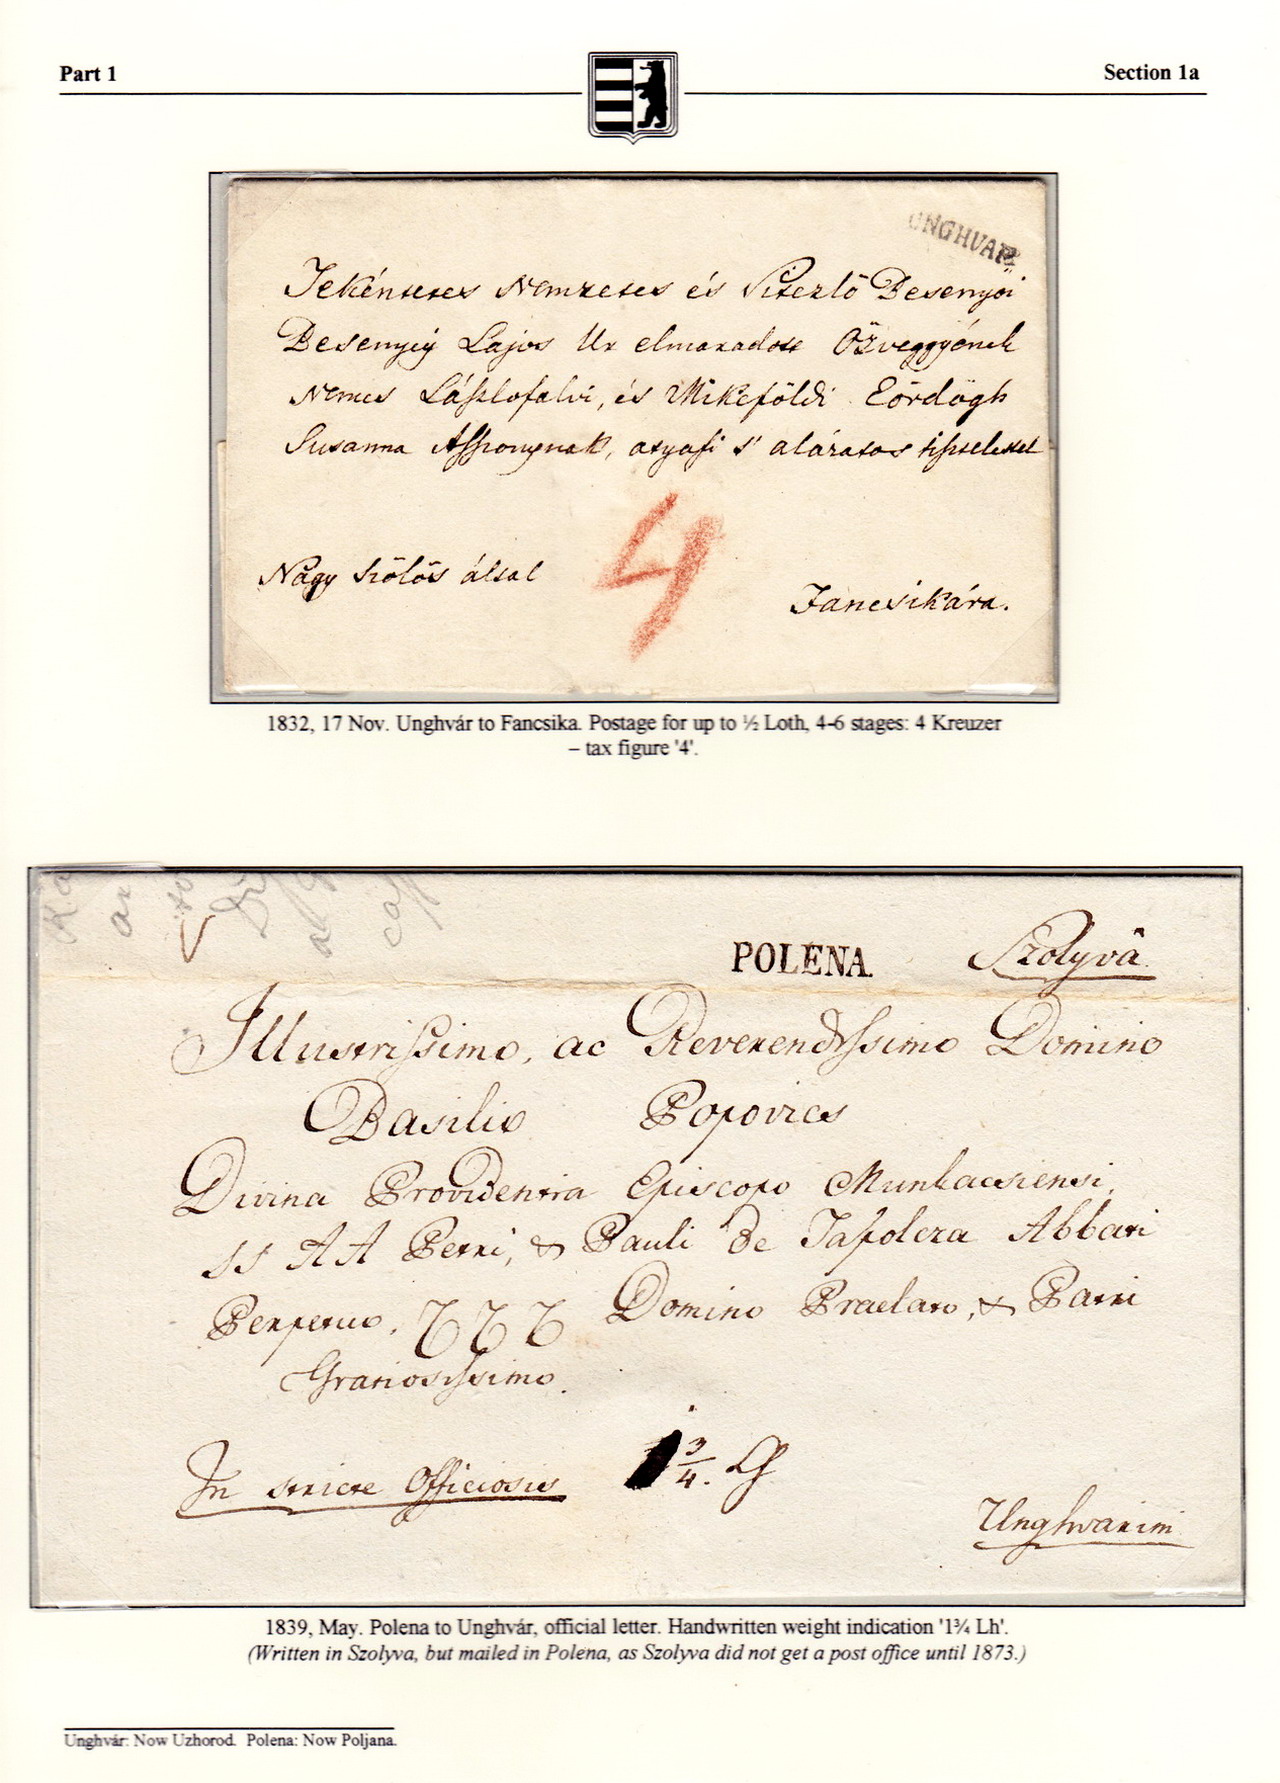 Part 1
Section 1a
UNGHVAR
Tekéntetes Nemzetes és Vitezlö Besenyöi
Besenyey Lajos Ur elmaradott Özveggyének
Nemes Lászlofalvi, és Mikeföldi Eördögh
Susanna Asszonynak, atyafi s' alázatos tisztelettel
4
Nagy Szölös által
Fancsikára.
1832, 17 Nov. Unghvár to Fancsika. Postage for up to ½ Loth, 4-6 stages: 4 Kreuzer
– tax figure '4'.
POLENA
Szolyva
Illustrissimo, ac Reverendissimo Domino
Basilio Popovics
Divina Providentia Episcopo Munkacsiensi,
SS AA Petri, & Pauli de Tapolcza Abbati
Perpetuo, Domino Praelato, & Patri
Gratiosissimo.
In stricte Officiosis
1 3/4.
Unghvarini
1839, May. Polena to Unghvár, official letter. Handwritten weight indication '1¾ Lh'.
(Written in Szolyva, but mailed in Polena, as Szolyva did not get a post office until 1873.)
Unghvár: Now Uzhorod. Polena: Now Poljana.